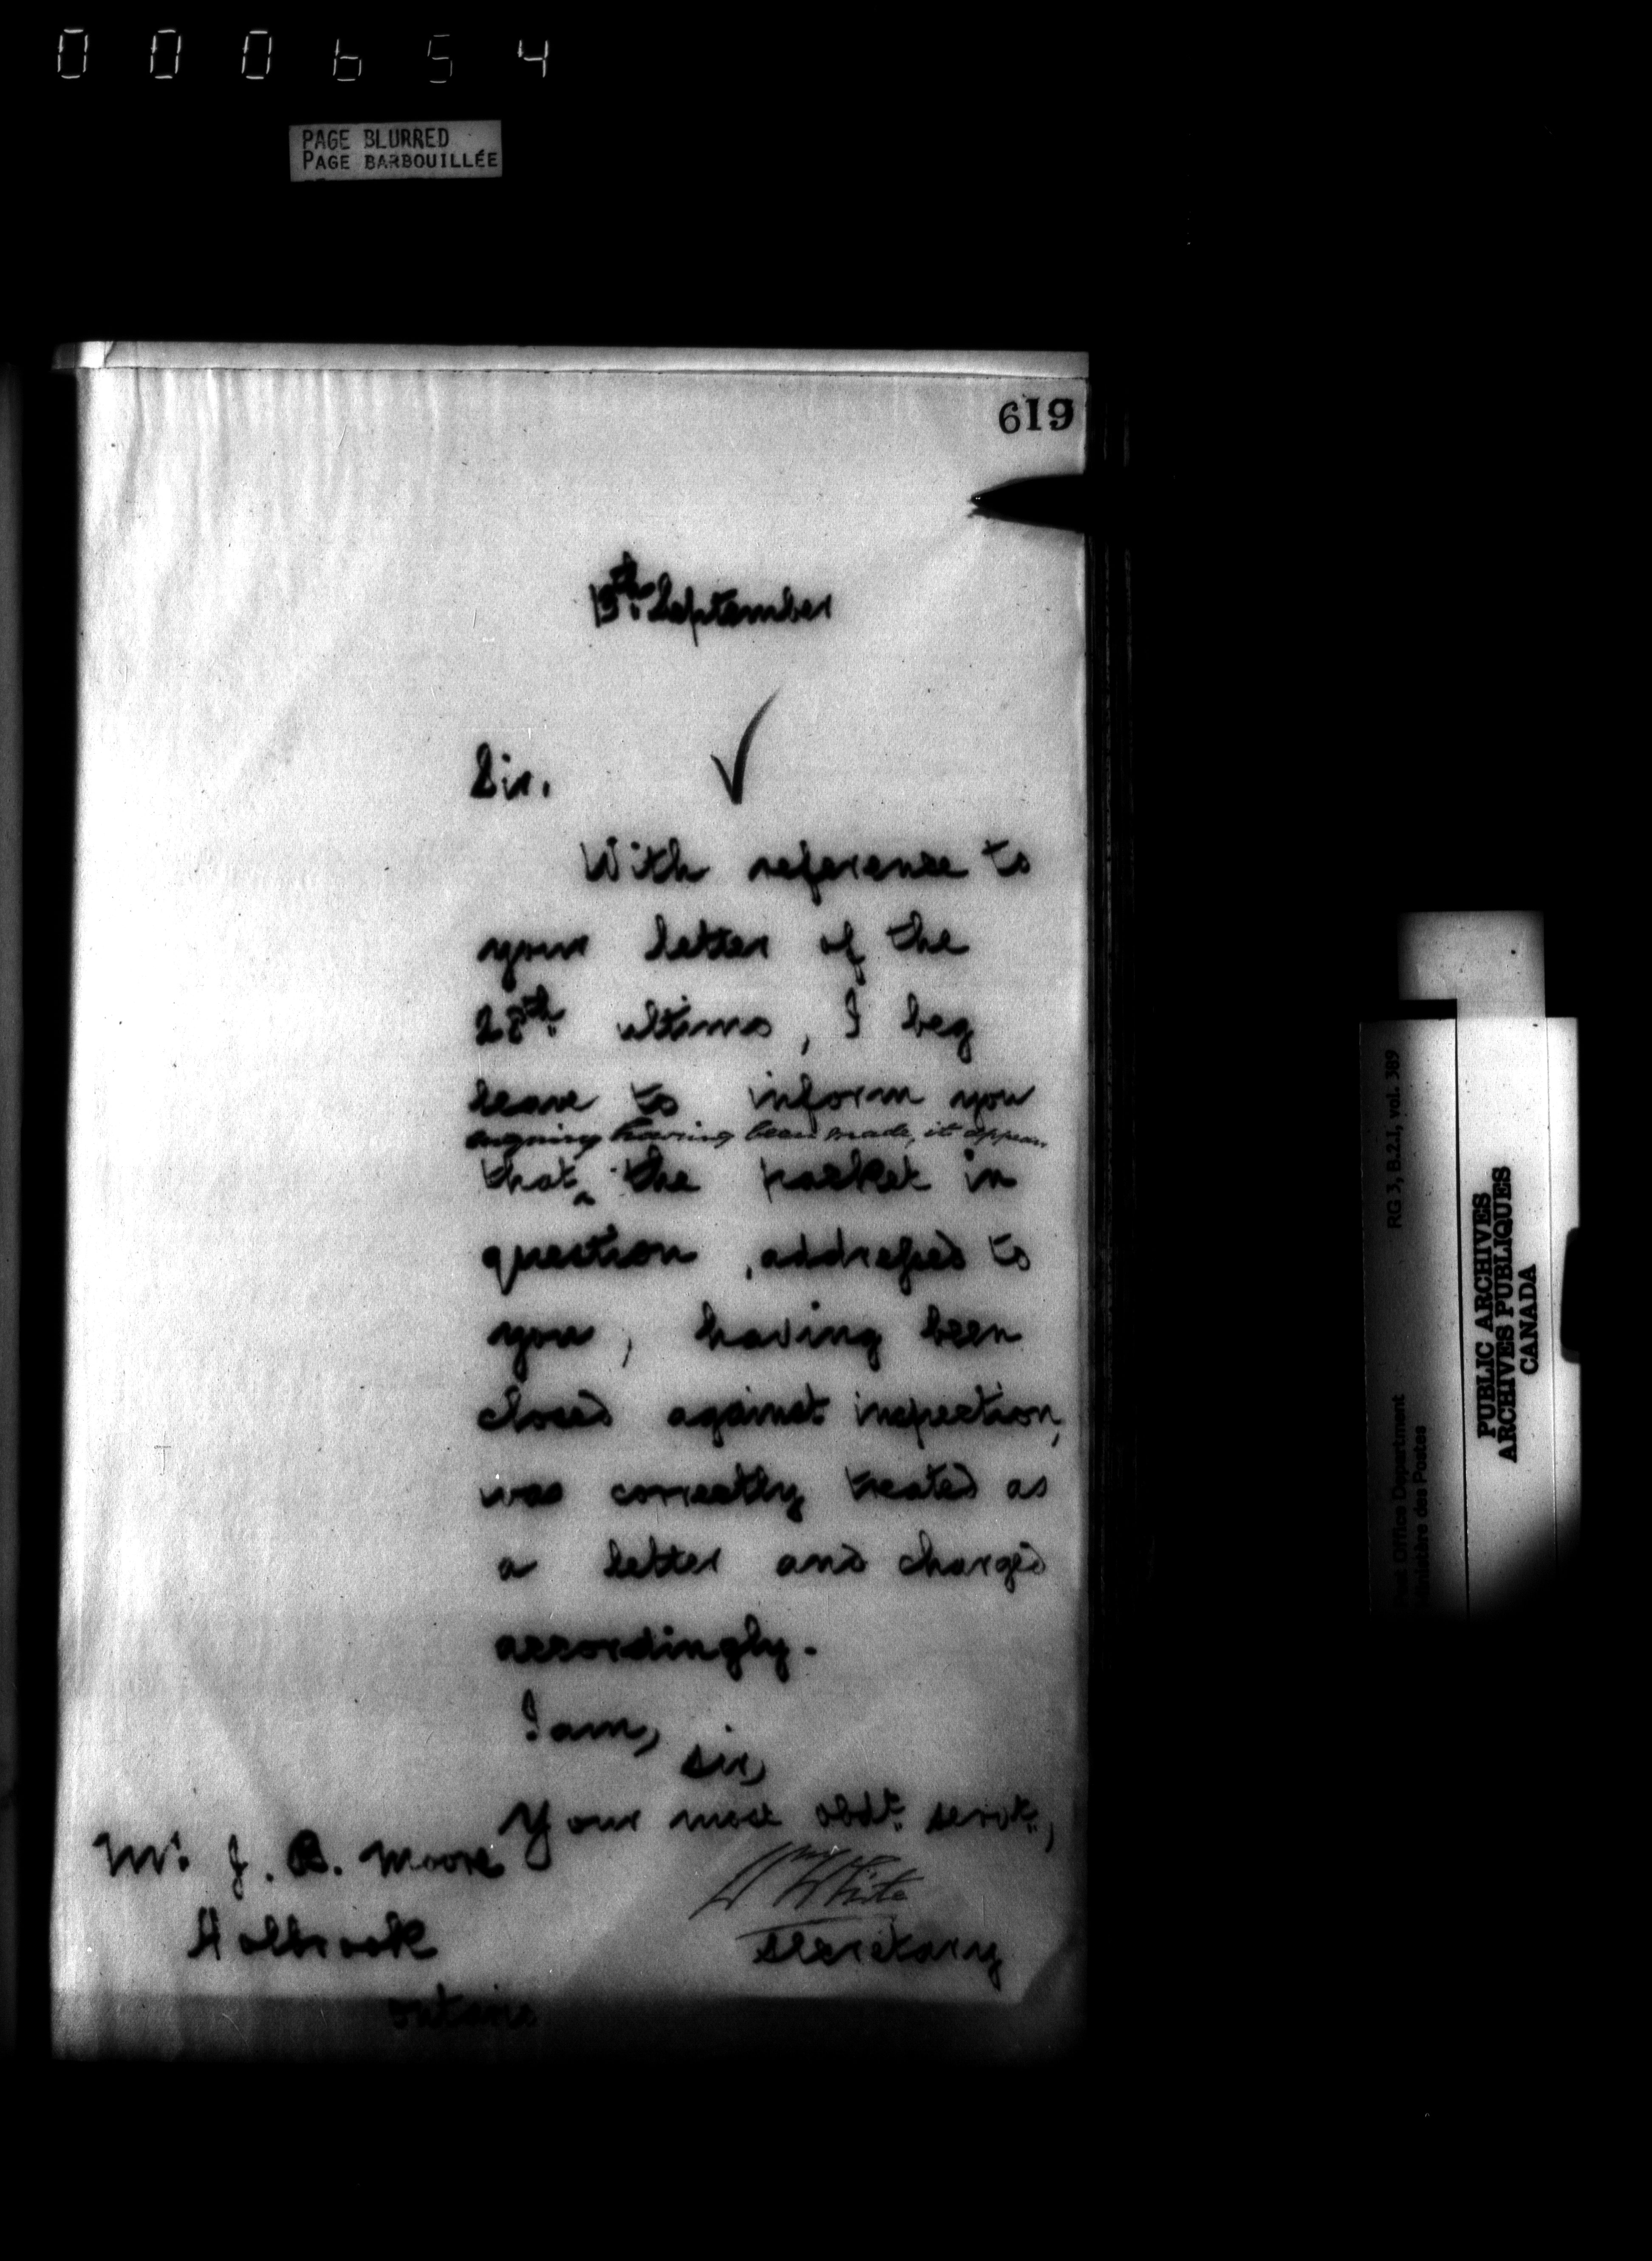 000654
PAGE BLURRED
PAGE BARBOUILLÉE
619
13th. September
Sir.
With reference to
your letter of the
28th. ultimo, I beg
leave to inform you
enquiry having been made, it appears
that ^ the packet in
question, addressed to
you, having been
closed against inspection,
was correctly treated as
a letter and charged
accordingly.
I am,
Sir,
Your most obdt. servt.,
Wm White
Secretary
Mr. J. B. Moore
Holbrook
Ontario
RG 3, B.2.1, vol. 389
Post Office Department
Ministère des Postes
PUBLIC ARCHIVES
ARCHIVES PUBLIQUES
CANADA